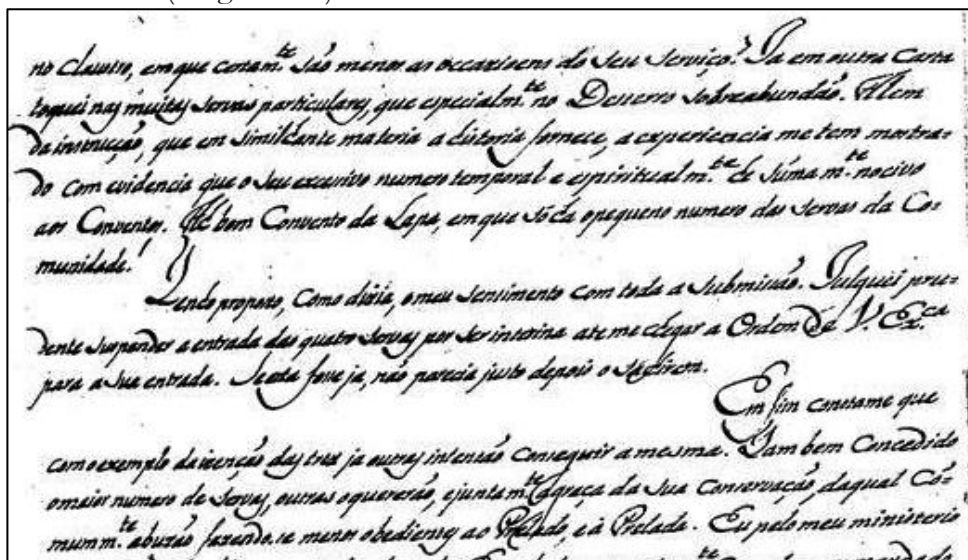 no Claustro, em que certam.te são menos as occazioens do Seu Serviço? Ja em outra Carta
toquei nas muitas Servas particulares, que especialm.te no Desterro Sobreabundão. Alem
da instrucção, que em Similhante materia a Historia fornece, a experiencia me tem mostra=
do com evidencia que o Seu excessivo numero temporal e espiritualm.te he Súmam.te nocivo
aos Conventos. He bom Convento da Lapa, em que Só há o pequeno numero das Servas da Co=
munidade!
Tendo proposto, como devia, o meu Sentimento com toda a Submissão. Julguei pru=
dente Suspender a entrada das quatro Servas por Ser interina ate me chegar a Ordem de V. Ex.ca
para a Sua entrada. Se esta fosse ja, não parecia justo depois o Sahirem.
Em fim consta me que
com o exemplo da izenção das tres ja outras intentão Conseguir a mesma. Tambem Concedido
o maior numero de Servas, outras o quererão, e juntam.te a graça da Sua Conservação, da qual Cò=
mumm.te abuzão fazendo.se menos obedientes ao Prelado, e à Prelada. Eu pelo meu ministerio